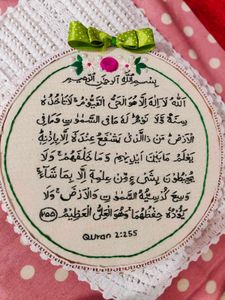 بسم الله الرحمن الرحيم
الله لا اله الا هو الحي القيوم لا تاخذه
سنة ولا نوم له ما في السموت وما في
الارض من ذا الذي يشفع عنده الا باذنه
يعلم ما بين ايديهم وما خلفهم ولا
يحيطون بشيء من علمه الا بما شاء
وسع كرسيه السموت والارض ولا
يـوده حفظهما وهو العلي العظيم ٢٥٥
Quran 2:255